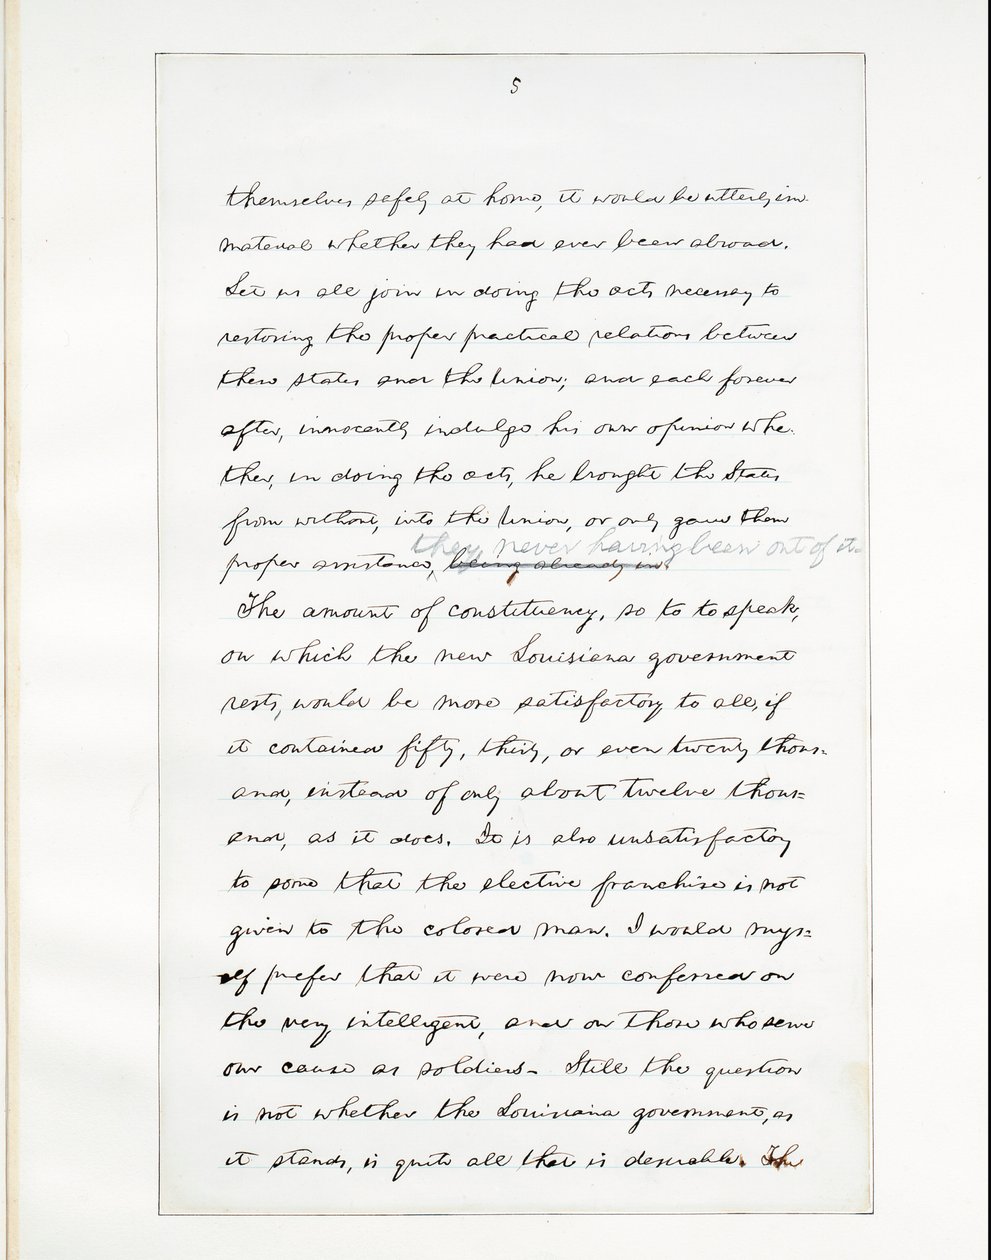 5
themselves safely at home, it would be utterly im-
material whether they had ever been abroad.
Let us all join in doing the acts necessary to
restoring the proper practical relations between
these states and the Union; and each forever
after, innocently indulge his own opinion whe-
ther, in doing the acts, he brought the States
from without, into the Union, or only gave them
they never having been out of it.
proper assistance, being already in.
The amount of constituency, so to to speak,
on which the new Louisiana government
rests, would be more satisfactory to all, if
it contained fifty, thirty, or even twenty thous=
and, instead of only about twelve thous=
and, as it does. It is also unsatisfactory
to some that the elective franchise is not
given to the colored man. I would mys=
elf prefer that it were now conferred on
the very intelligent, and on those who serve
our cause as soldiers- Still the question
is not whether the Louisiana government, as
it stands, is quite all that is desirable. The